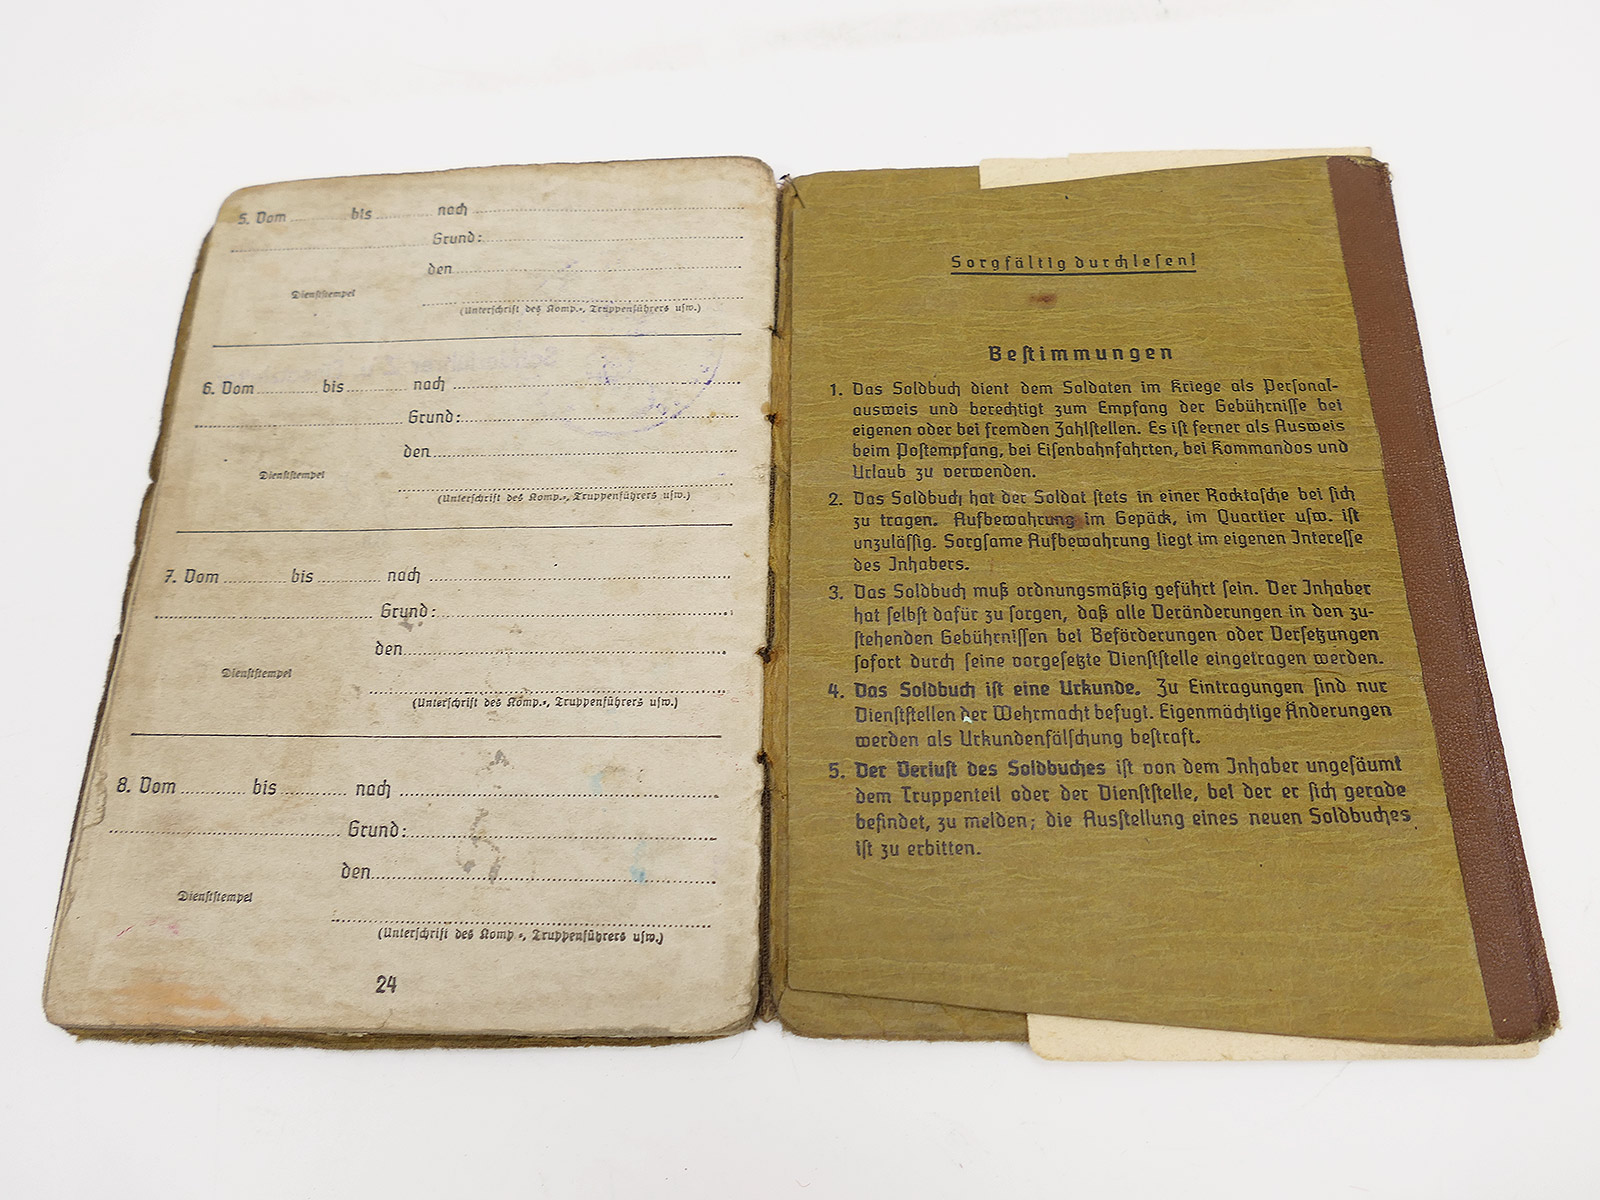 5. Vom ........ bis ........ nach ........
Grund: ........
den ........
Dienststempel
(Unterschrift des Komp.-, Truppenführers usw.)
6. Vom ........ bis ........ nach ........
Grund: ........
den ........
Dienststempel
(Unterschrift des Komp.-, Truppenführers usw.)
7. Vom ........ bis ........ nach ........
Grund: ........
den ........
Dienststempel
(Unterschrift des Komp.-, Truppenführers usw.)
8. Vom ........ bis ........ nach ........
Grund: ........
den ........
Dienststempel
(Unterschrift des Komp.-, Truppenführers usw.)
24
Sorgfältig durchlesen!
Bestimmungen
1. Das Soldbuch dient dem Soldaten im Kriege als Personal-
ausweis und berechtigt zum Empfang der Gebührnisse bei
eigenen oder bei fremden Zahlstellen. Es ist ferner als Ausweis
beim Postempfang, bei Eisenbahnfahrten, bei Kommandos und
Urlaub zu verwenden.
2. Das Soldbuch hat der Soldat stets in einer Rocktasche bei sich
zu tragen. Aufbewahrung im Gepäck, im Quartier usw. ist
unzulässig. Sorgsame Aufbewahrung liegt im eigenen Interesse
des Inhabers.
3. Das Soldbuch muß ordnungsmäßig geführt sein. Der Inhaber
hat selbst dafür zu sorgen, daß alle Veränderungen in den zu-
stehenden Gebührnissen bei Beförderungen oder Versetzungen
sofort durch seine vorgesetzte Dienststelle eingetragen werden.
4. Das Soldbuch ist eine Urkunde. Zu Eintragungen sind nur
Dienststellen der Wehrmacht befugt. Eigenmächtige Änderungen
werden als Urkundenfälschung bestraft.
5. Der Verlust des Soldbuches ist von dem Inhaber ungesäumt
dem Truppenteil oder der Dienststelle, bei der er sich gerade
befindet, zu melden; die Ausstellung eines neuen Soldbuches
ist zu erbitten.